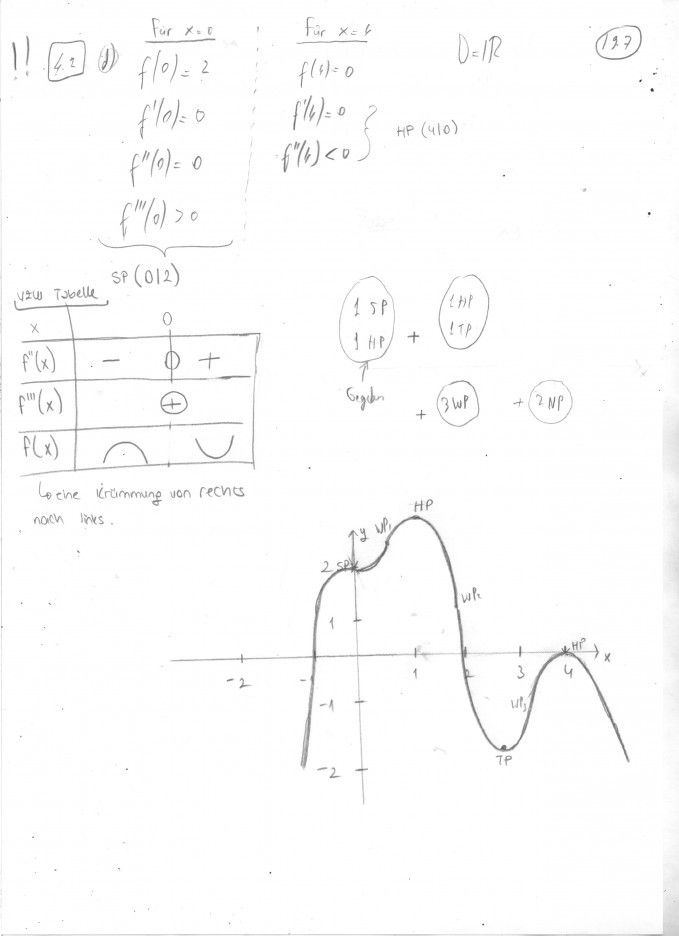 !! 4.2 d) Für x=0 Für x=4 D=ℝ 127
f(0)=2 f(4)=0
f'(0)=0 f'(4)=0
f''(0)=0 f''(4)<0 } HP (4|0)
f'''(0)>0
SP(0|2)
VZW Tabelle
x 0
f''(x) − 0 +
f'''(x) +
f(x)
↳ eine Krümmung von rechts
nach links.
1 SP 1 HP
1 HP + 1 TP
Gegeben
+ 3WP + 2 NP
HP
y WP₁
2 SP
WP₂
1
HP
-2 - 1 2 3 4 x
-1 WP₃
TP
-2